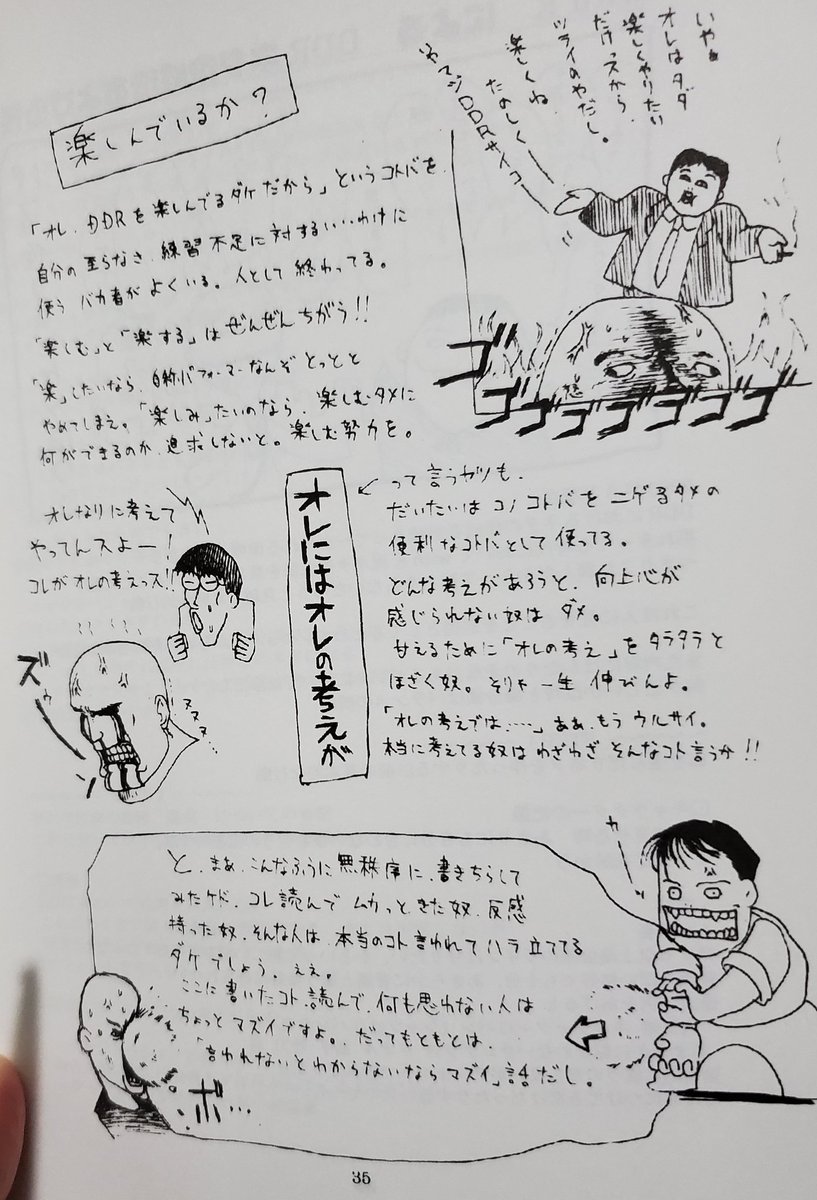 いやぁ
オレはタダ
楽しくやりたい
だけっスから、
ツライのやだし。
楽しくね
たのしくー
いやマジDDRサイコー
楽しんでいるか？
「オレ、DDRを楽しんでるダケだから」というコトバを、
自分の至らなさ、練習不足に対するいいわけに
使うバカ者がよくいる。人として終わってる。
「楽しむ」と「楽する」はぜんぜんちがう!!
「楽」したいなら、自称パフォーマーなんぞとっとと
やめてしまえ。「楽しみ」たいのなら、楽しむタメに
何ができるのか、追求しないと。楽しむ努力を。
ゴゴゴゴゴゴゴゴ
オレにはオレの考えが
って言うヤツも、
だいたいはコノコトバをニゲるタメの
便利なコトバとして使ってる。
どんな考えがあろうと、向上心が
感じられない奴はダメ。
甘えるために「オレの考え」をタラタラと
ほざく奴。そりゃ一生伸びんよ。
「オレの考えでは……」ああ、もうウルサイ。
本当に考えてる奴はわざわざそんなコト言うか!!
オレなりに考えて
やってんスよー!
コレがオレの考えっス!!
ズゥ
ン
ヌヌヌ…
と、まぁ、こんなふうに無秩序に、書きちらして
みたケド、コレ読んでムカっときた奴、反感
持った奴、そんな人は、本当のコト言われてハラ立ててる
ダケでしょう。ええ。
ここに書いたコト読んで、何も思わない人は
ちょっとマズイですよ。だってもともとは、
「言われないとわからないならマズイ」話だし。
カ
ボ…
35